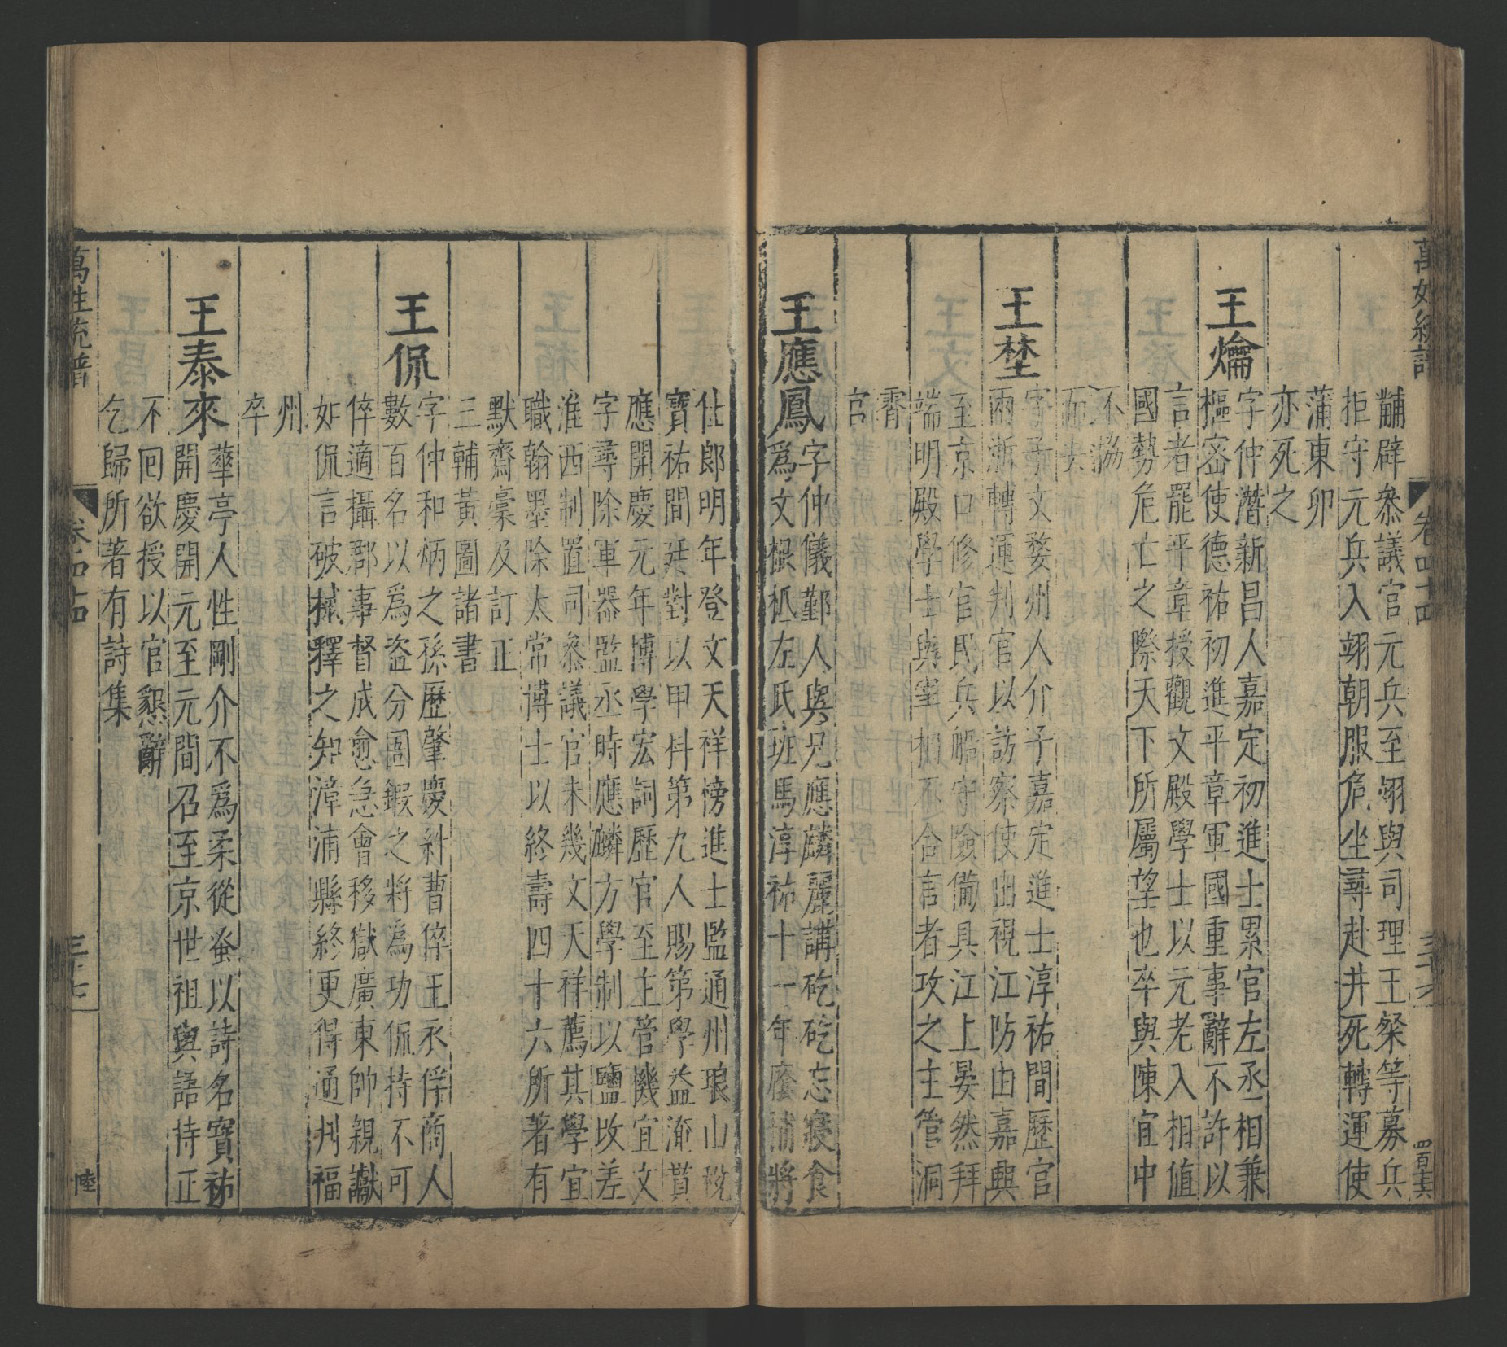 黼辟參議官元兵至翊與司理王粲等募兵
拒守元兵入翊朝服危坐尋赴井死轉運使
蒲東卯
亦死之
王爚
字仲潛新昌人嘉定初進士累官左丞相兼
樞密使德祐初進平章軍國重事辭不許以
言者罷平章授觀文殿學士以元老入相值
國勢危亡之際天下所屬望也卒與陳宜中
不協
而去
王埜
字子文婺州人介子嘉定進士淳祐間歷官
兩浙轉運判官以訪察使出視江防由嘉興
至京口修官民兵船守險備具江上晏然拜
端明殿學士與宰相不合言者攻之主管洞
霄
宮
王應鳳
字仲儀鄞人與兄應麟麗講矻矻忘寢食
為文根柢左氏班馬淳祐十一年廕補將
仕郎明年登文天祥傍進士監通州狼山稅
寶祐間廷對以甲科第九人賜第學益淹貫
應開慶元年博學宏詞歷官至主管機宜文
字尋除軍器監丞時應麟方學制以鹽改差
淮西制置司參議官未幾文天祥薦其學宜
職翰墨除太常博士以終壽四十六所著有
默齋稾及訂正
三輔黃圖諸書
王侃
字仲和炳之孫歷肇慶糾曹倅王丞俘商人
數百名以為盜分圄鍜之將為功侃持不可
倅適攝郡事督成愈急會移獄廣東帥親讞
如侃言破械釋之知漳浦縣終更得通判福
州
卒
王泰來
華亭人性剛介不為柔從蚤以詩名寶祐
開慶開元至元間召至京世祖與語待正
不囘欲授以官懇辭
乞歸所著有詩集
萬姓統譜
卷四十四
三十六
四百十六
萬姓統譜
卷四十四
三十七
陸